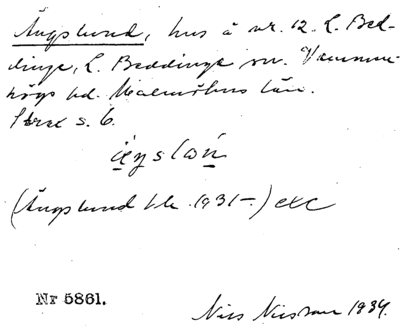 Ängslund, hus å nr. 12 L. Bed-
dinge, L. Beddinge sn. Vemmen-
högs hd. Malmöhus län.
s. 6.
(Ängslund 1931-) exc
Nr 5861.
Nils Nilsson 1934.